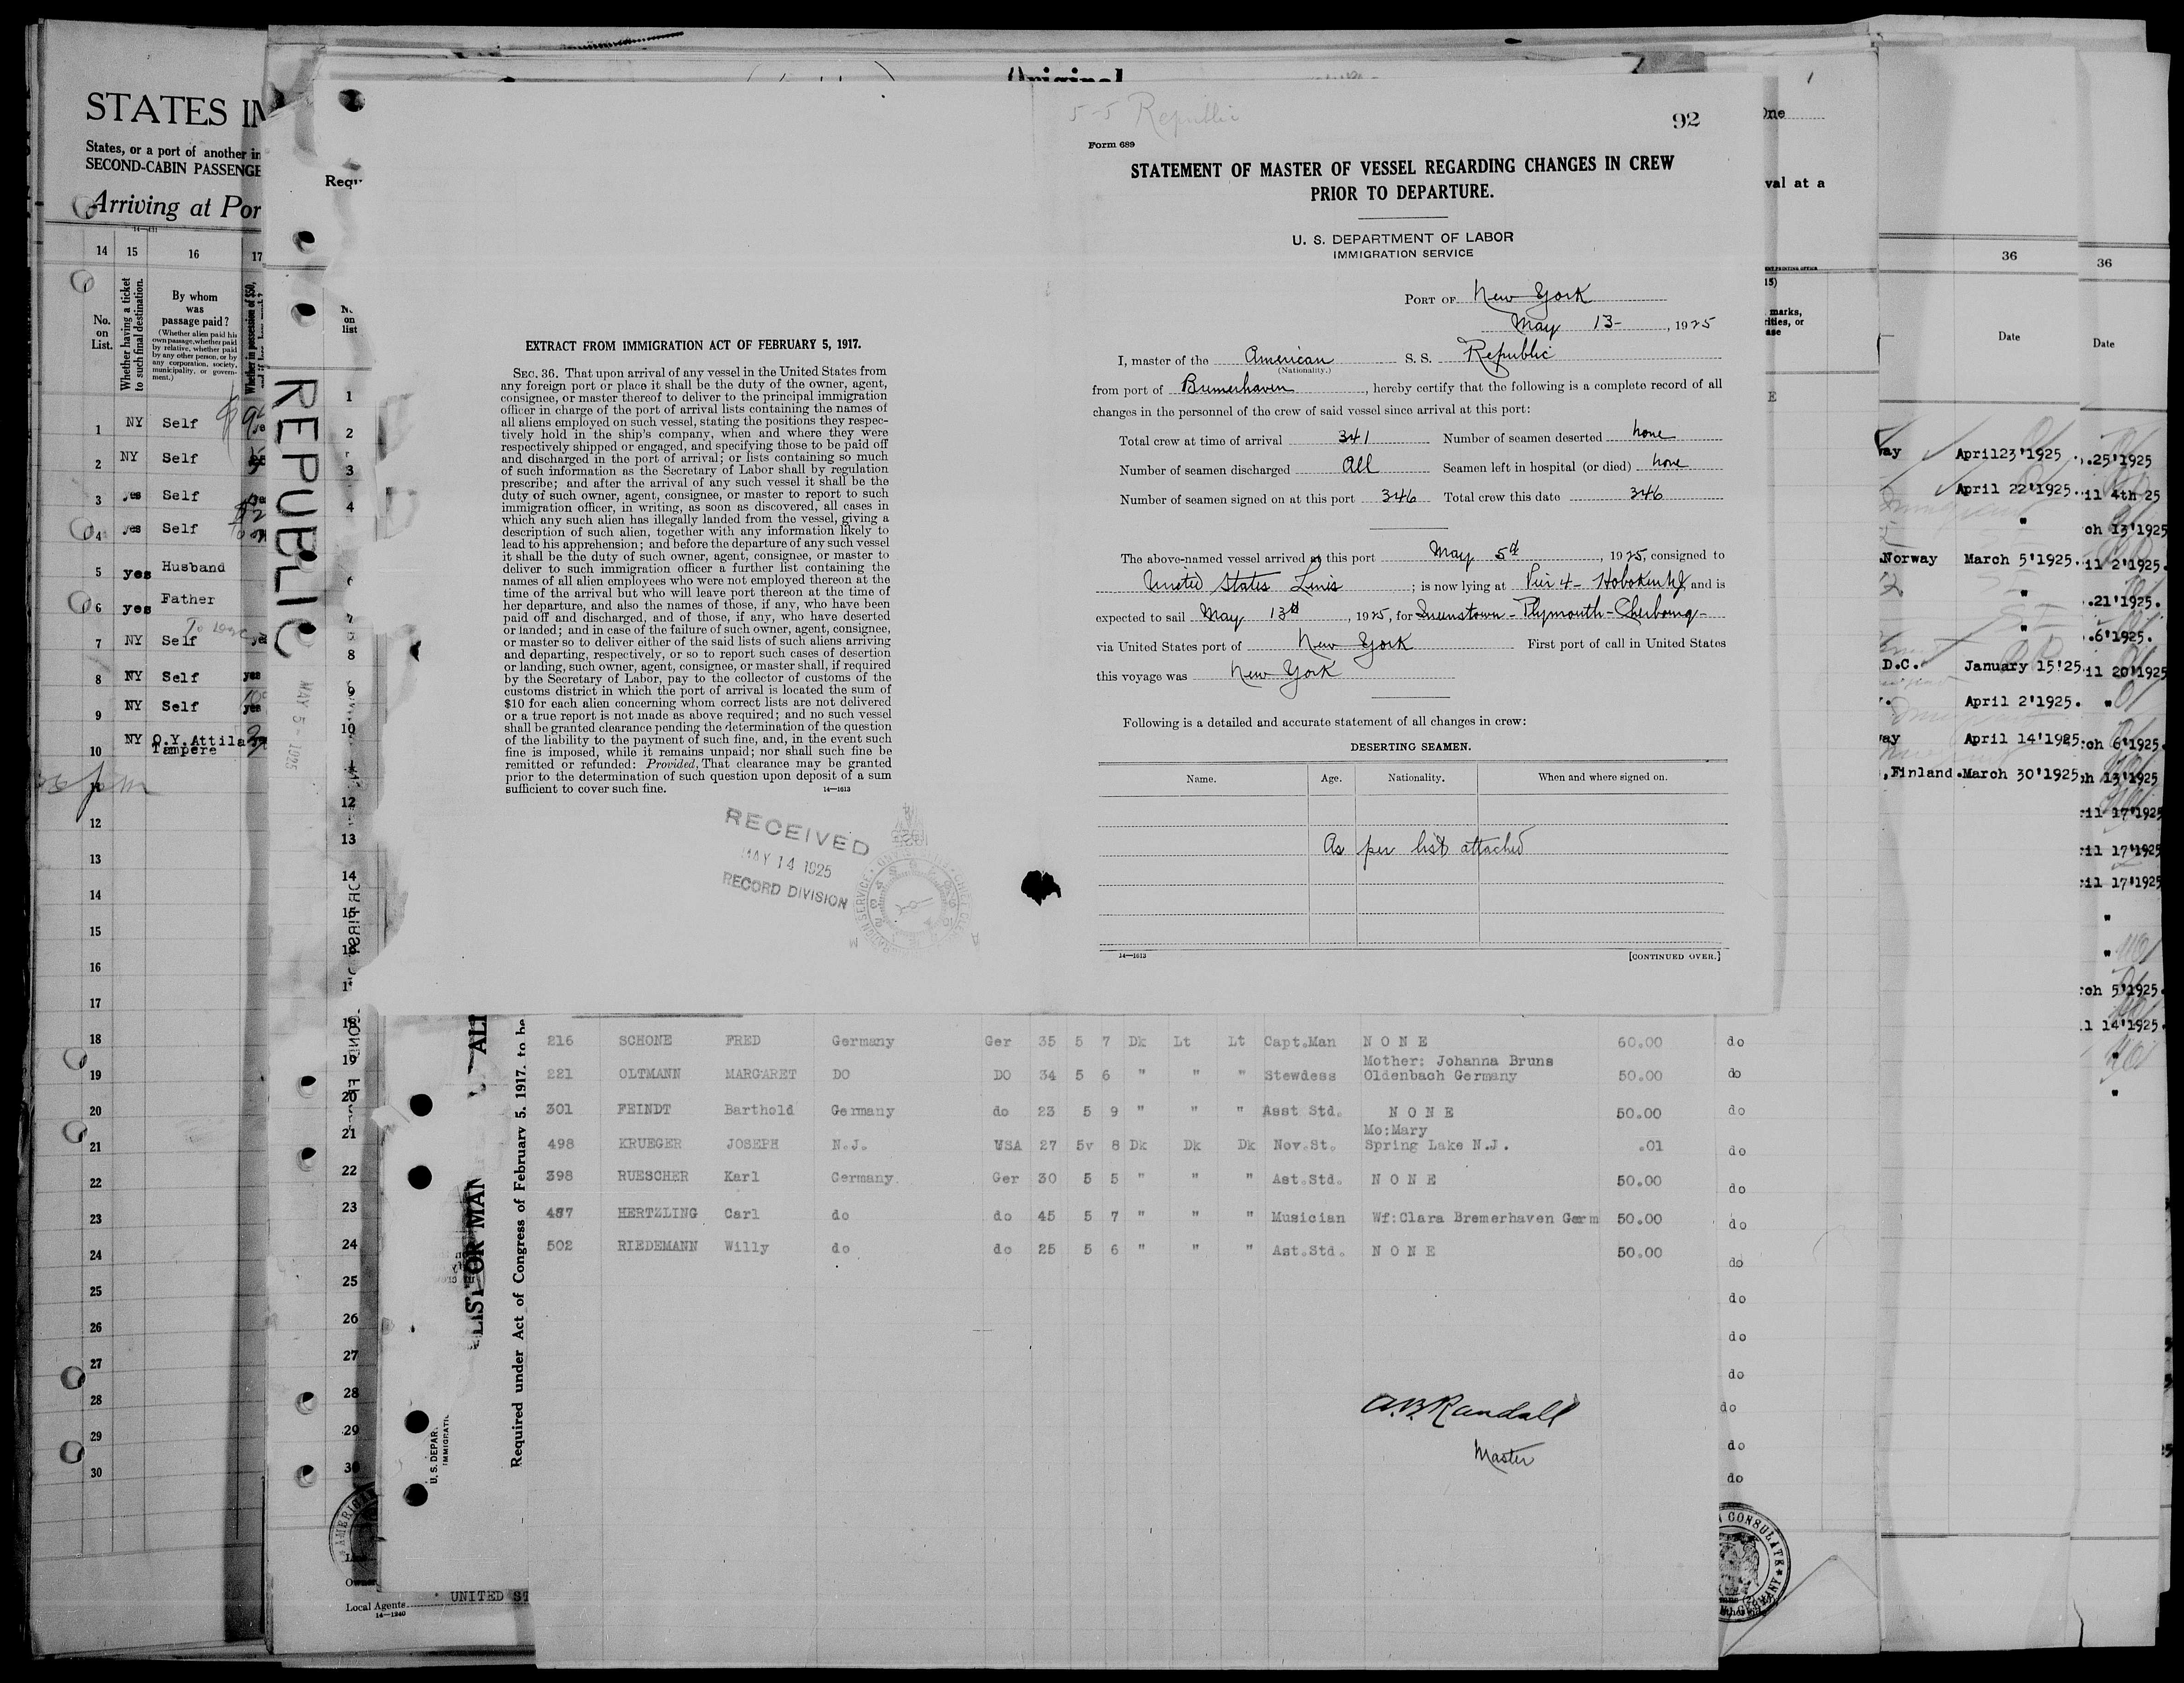 STATES IN
States, or a port of another in
SECOND-CABIN PASSENGE
Arriving at Por
14 15 16 17
No. on List.
Whether having a ticket to such final destination.
By whom was passage paid?
(Whether alien paid his own passage, whether paid by relative, whether paid by any other person, or by any corporation, society, municipality, or government.)
Whether in possession of $50,
1 NY Self
2 NY Self
3 yes Self
4 yes Self
5 yes Husband
6 yes Father
7 NY Self
8 NY Self yes
9 NY Self yes
10 NY O.Y.Attila Tampere
12
13
14
15
16
17
18
19
20
21
22
23
24
25
26
27
28
29
30
REPUBLIC
MAY 5 - 1925
on
list
1
2
3
4
8
9
10
12
13
14
21
22
23
24
25
26
27
28
29
30
Local Agents UNITED ST
14—1240
EXTRACT FROM IMMIGRATION ACT OF FEBRUARY 5, 1917.
SEC. 36. That upon arrival of any vessel in the United States from
any foreign port or place it shall be the duty of the owner, agent,
consignee, or master thereof to deliver to the principal immigration
officer in charge of the port of arrival lists containing the names of
all aliens employed on such vessel, stating the positions they respec-
tively hold in the ship's company, when and where they were
respectively shipped or engaged, and specifying those to be paid off
and discharged in the port of arrival; or lists containing so much
of such information as the Secretary of Labor shall by regulation
prescribe; and after the arrival of any such vessel it shall be the
duty of such owner, agent, consignee, or master to report to such
immigration officer, in writing, as soon as discovered, all cases in
which any such alien has illegally landed from the vessel, giving a
description of such alien, together with any information likely to
lead to his apprehension; and before the departure of any such vessel
it shall be the duty of such owner, agent, consignee, or master to
deliver to such immigration officer a further list containing the
names of all alien employees who were not employed thereon at the
time of the arrival but who will leave port thereon at the time of
her departure, and also the names of those, if any, who have been
paid off and discharged, and of those, if any, who have deserted
or landed; and in case of the failure of such owner, agent, consignee,
or master so to deliver either of the said lists of such aliens arriving
and departing, respectively, or so to report such cases of desertion
or landing, such owner, agent, consignee, or master shall, if required
by the Secretary of Labor, pay to the collector of customs of the
customs district in which the port of arrival is located the sum of
$10 for each alien concerning whom correct lists are not delivered
or a true report is not made as above required; and no such vessel
shall be granted clearance pending the determination of the question
of the liability to the payment of such fine, and, in the event such
fine is imposed, while it remains unpaid; nor shall such fine be
remitted or refunded: Provided, That clearance may be granted
prior to the determination of such question upon deposit of a sum
sufficient to cover such fine.
14—1613
RECEIVED
MAY 14 1925
RECORD DIVISION
Original
5-5 Republic
92
Form 689
STATEMENT OF MASTER OF VESSEL REGARDING CHANGES IN CREW
PRIOR TO DEPARTURE.
U. S. DEPARTMENT OF LABOR
IMMIGRATION SERVICE
PORT OF New York
May 13- , 1925
I, master of the American S. S. Republic
(Nationality.)
from port of Bremerhaven, hereby certify that the following is a complete record of all
changes in the personnel of the crew of said vessel since arrival at this port:
Total crew at time of arrival 341 Number of seamen deserted none
Number of seamen discharged All Seamen left in hospital (or died) none
Number of seamen signed on at this port 346 Total crew this date 346
The above-named vessel arrived at this port May 5th, 1925, consigned to
United States Lines; is now lying at Pier 4- Hoboken NJ, and is
expected to sail May 13th, 1925, for Queenstown - Plymouth - Cherbourg-
via United States port of New York First port of call in United States
this voyage was New York
Following is a detailed and accurate statement of all changes in crew:
DESERTING SEAMEN.
Name. Age. Nationality. When and where signed on.
As per list attached
14—1613 [CONTINUED OVER.]
LIST OR MAN ALI
Required under Act of Congress of February 5, 1917, to be
U. S. DEPAR.
IMMIGRATI
216 SCHONE FRED Germany Ger 35 5 7 Dk Lt Lt Capt.Man N O N E 60.00 do
Mother: Johanna Bruns
221 OLTMANN MARGARET DO DO 34 5 6 " " " Stewdess Oldenbach Germany 50.00 do
301 FEINDT Barthold Germany do 23 5 9 " " " Asst Std. N O N E 50.00 do
Mo:Mary
498 KRUEGER JOSEPH N.J. USA 27 5v 8 Dk Dk Dk Nov.St. Spring Lake N.J. .01 do
398 RUESCHER Karl Germany. Ger 30 5 5 " " " Ast.Std. N O N E 50.00 do
487 HERTZLING Carl do do 45 5 7 " " " Musician Wf:Clara Bremerhaven Germ 50.00 do
502 RIEDEMANN Willy do do 25 5 6 " " " Ast.Std. N O N E 50.00 do
do
do
do
do
do
do
A.B. Randall
Master
One
val at a
marks,
CONSULATE
36
Date
way April23'1925
April 22'1925.
"
Norway March 5'1925.
"
"
D.C. January 15'25
April 2'1925.
way April 14'1925
,Finland. March 30'1925
36
Date
.25'1925
il 4th 25
ch 13'1925
il 2'1925.
.21'1925.
.6'1925.
il 20'1925
"
ch 6'1925.
h 13'1925
il 17'1925
il 17'1925
il 17'1925
"
"
ch 5'1925.
l 14'1925.
"
"